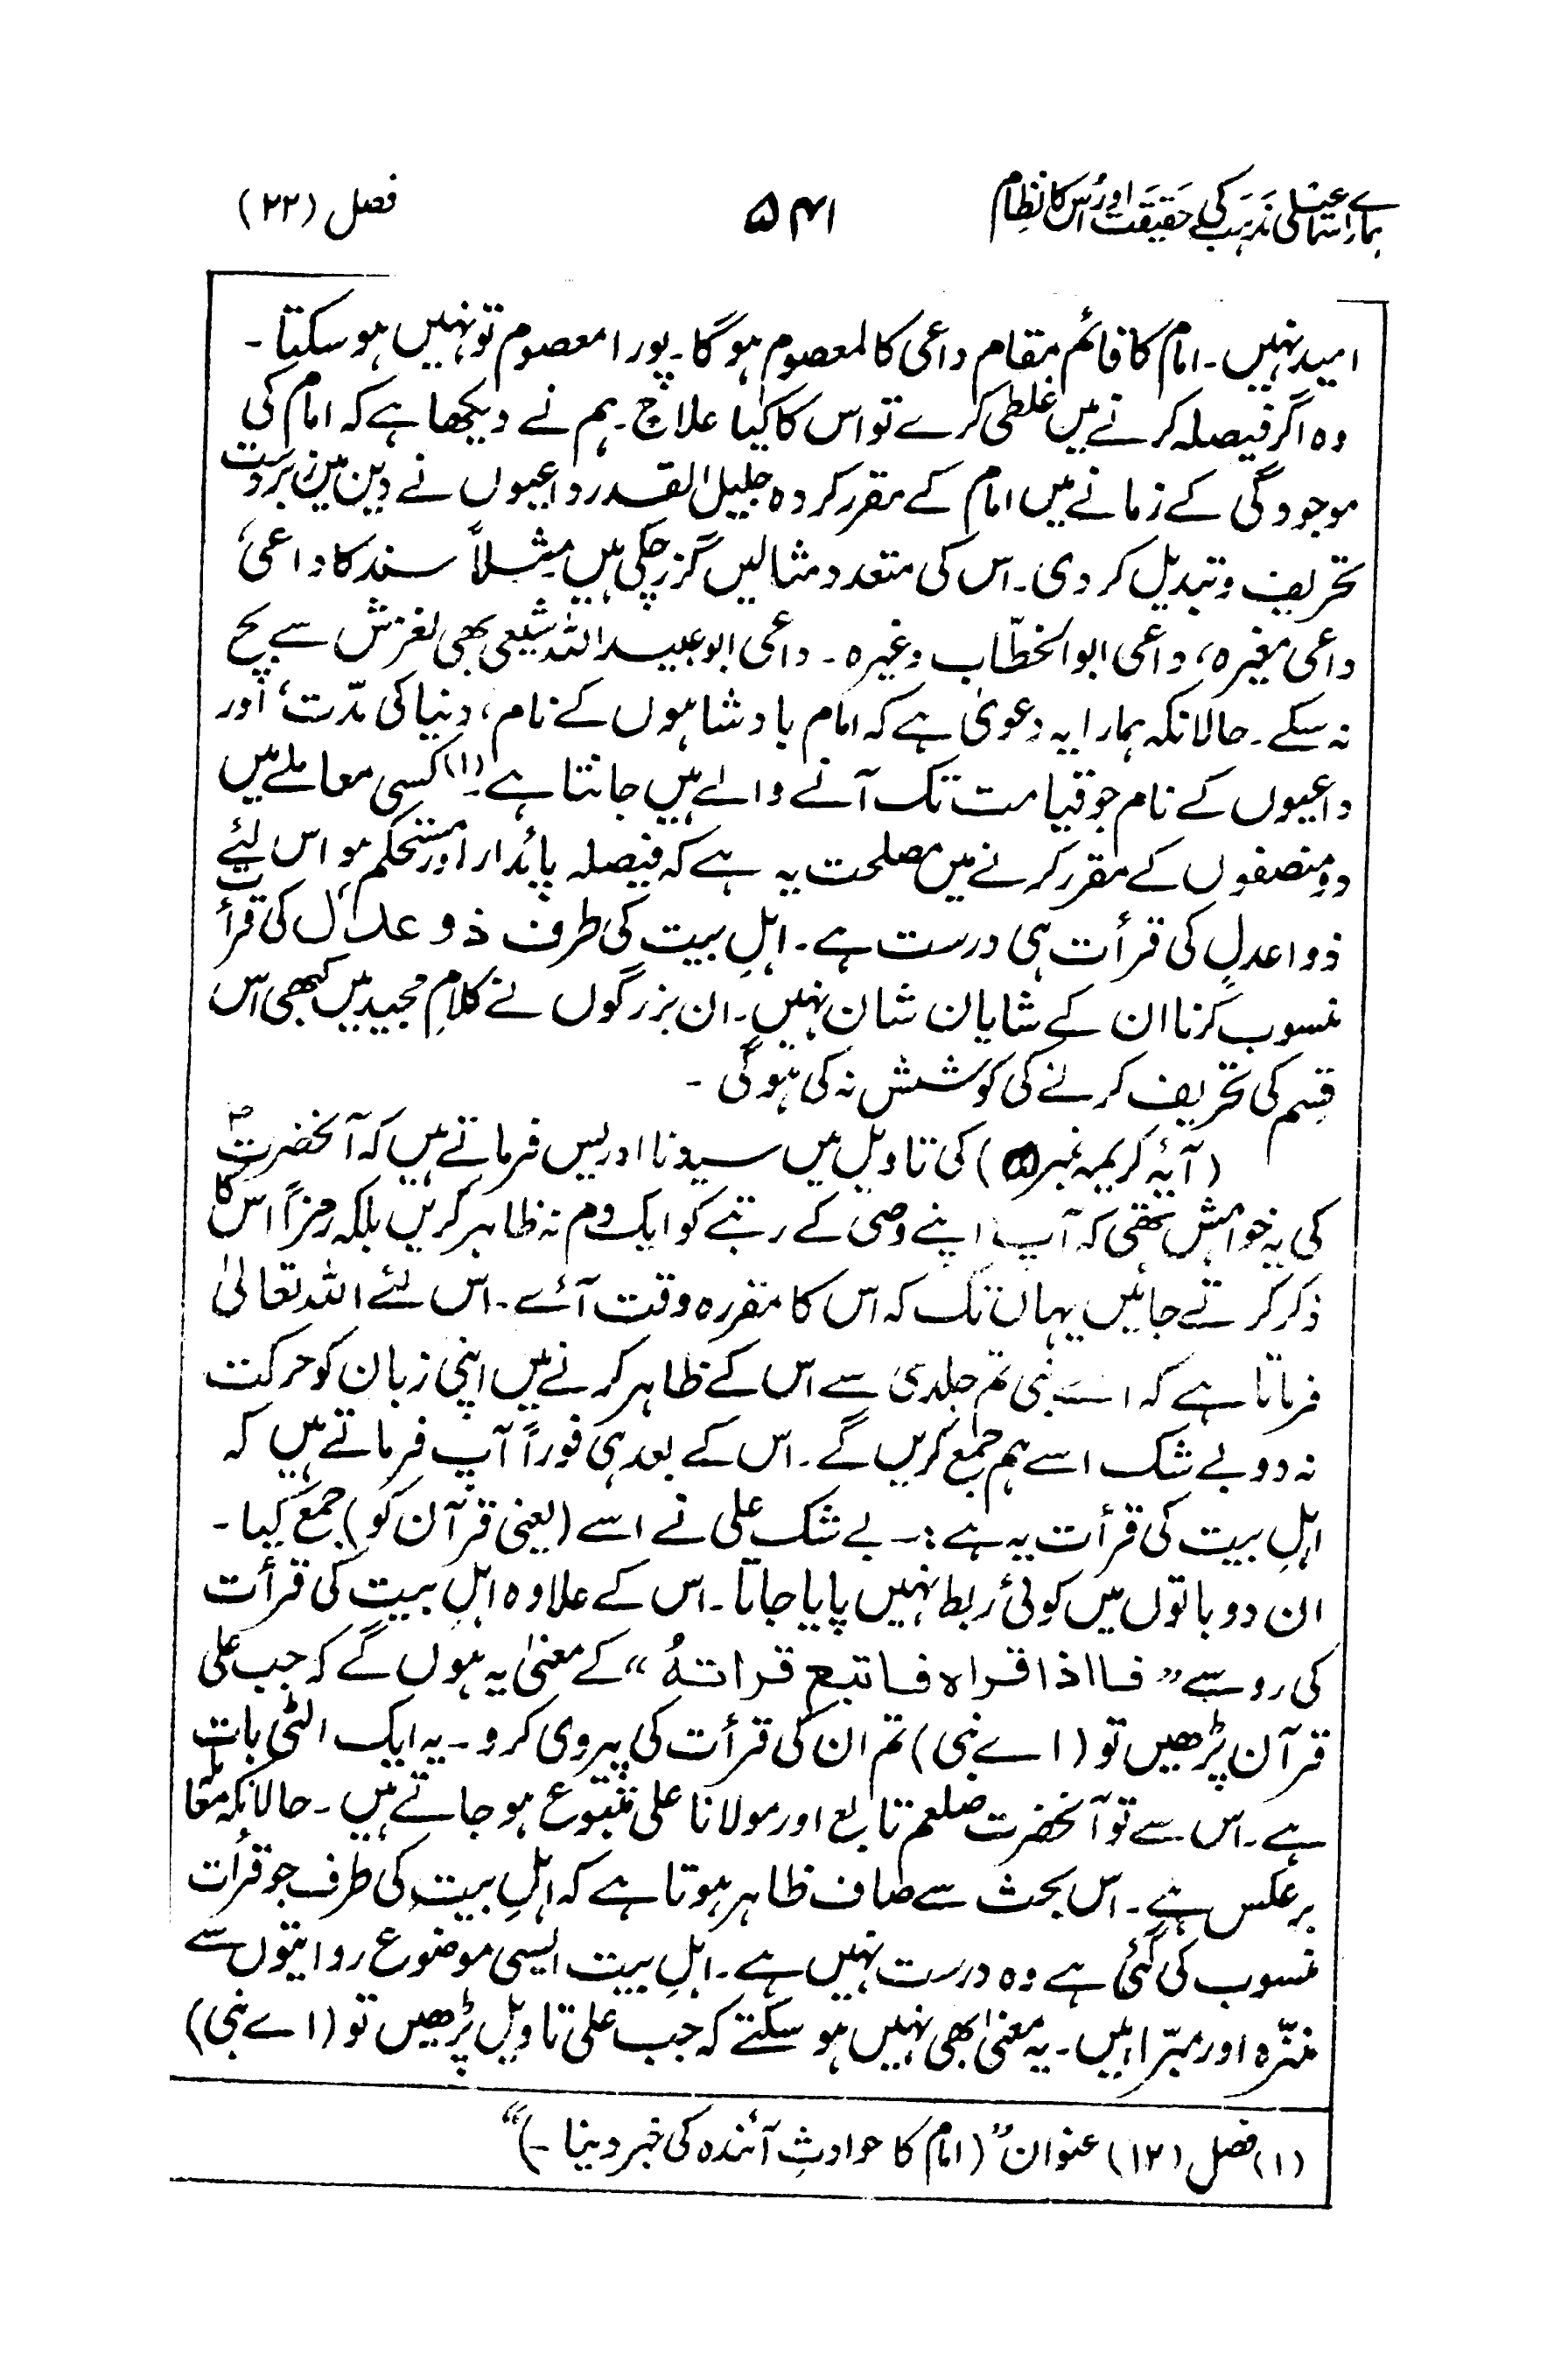 ہمارے اسماعیلی مذہب کی حقیقت اور اُس کا نظام
۵۴۱
فصل (۲۳)
امید نہیں۔ امام کا قائم مقام داعی کالمعصوم ہوگا۔ پورا معصوم تو نہیں ہو سکتا۔
وہ اگر فیصلہ کرنے میں غلطی کرے تو اس کا کیا علاج۔ ہم نے دیکھا ہے کہ امام کی
موجودگی کے زمانے میں امام کے مقرر کردہ جلیل القدر داعیوں نے دین میں زبردست
تحریف و تبدیل کر دی۔ اس کی متعدد مثالیں گزر چکی ہیں۔ مثلاً سند کا داعی،
داعی مغیرہ، داعی ابو الخطّاب وغیرہ۔ داعی ابو عبید اللہ شیعی بھی لغزش سے بچ
نہ سکے۔ حالانکہ ہمارا یہ دعویٰ ہے کہ امام بادشاہوں کے نام، دنیا کی مدّت، اور
داعیوں کے نام جو قیامت تک آنے والے ہیں جانتا ہے۔(۱) کسی معاملے میں
دو منصفوں کے مقرر کرنے میں مصلحت یہ ہے کہ فیصلہ پائدار اور مستحکم ہو اس لئے
ذوا عدلٍ کی قرأت ہی درست ہے۔ اہلِ بیت کی طرف ذو عدل کی قرأت
منسوب کرنا ان کے شایان شان نہیں۔ ان بزرگوں نے کلامِ مجید میں کبھی اس
قِسم کی تحریف کرنے کی کوشش نہ کی ہوگی۔
(آیۂ کریمہ نمبر ۵) کی تاویل میں سیدنا ادریس فرماتے ہیں کہ آنحضرتؐ
کی یہ خواہش تھی کہ آپ اپنے وصی کے رتبے کو ایک دم نہ ظاہر کریں بلکہ رمزاً اس کا
ذکر کرتے جائیں یہاں تک کہ اس کا مقررہ وقت آئے۔ اس لئے اللہ تعالیٰ
فرماتا ہے کہ اے نبی تم جلدی سے اس کے ظاہر کرنے میں اپنی زبان کو حرکت
نہ دو بے شک اسے ہم جمع کریں گے۔ اس کے بعد ہی فوراً آپ فرماتے ہیں کہ
اہلِ بیت کی قرأت یہ ہے:۔ بے شک علی نے اسے (یعنی قرآن کو) جمع کیا۔
ان دو باتوں میں کوئی ربط نہیں پایا جاتا۔ اس کے علاوہ اہلِ بیت کی قرأت
کی رو سے ”فااذا قراہ فاتبع قراتہُ“ کے معنیٰ یہ ہوں گے کہ جب علی
قرآن پڑھیں تو (اے نبی) تم ان کی قرأت کی پیروی کرو۔ یہ ایک الٹی بات
ہے۔ اس سے تو آنحضرت صلعم تابع اور مولانا علی متبوع ہو جاتے ہیں۔ حالانکہ معاملہ
برعکس ہے۔ اس بحث سے صاف ظاہر ہوتا ہے کہ اہلِ بیت کی طرف جو قرأت
منسوب کی گئی ہے وہ درست نہیں ہے۔ اہلِ بیت ایسی موضوع روایتوں سے
منزّہ اور مبرّا ہیں۔ یہ معنیٰ بھی نہیں ہو سکتے کہ جب علی تاویل پڑھیں تو (اے نبی)
(۱) فصل (۱۲) عنوان ”(امام کا حوادثِ آئندہ کی خبر دینا۔)“